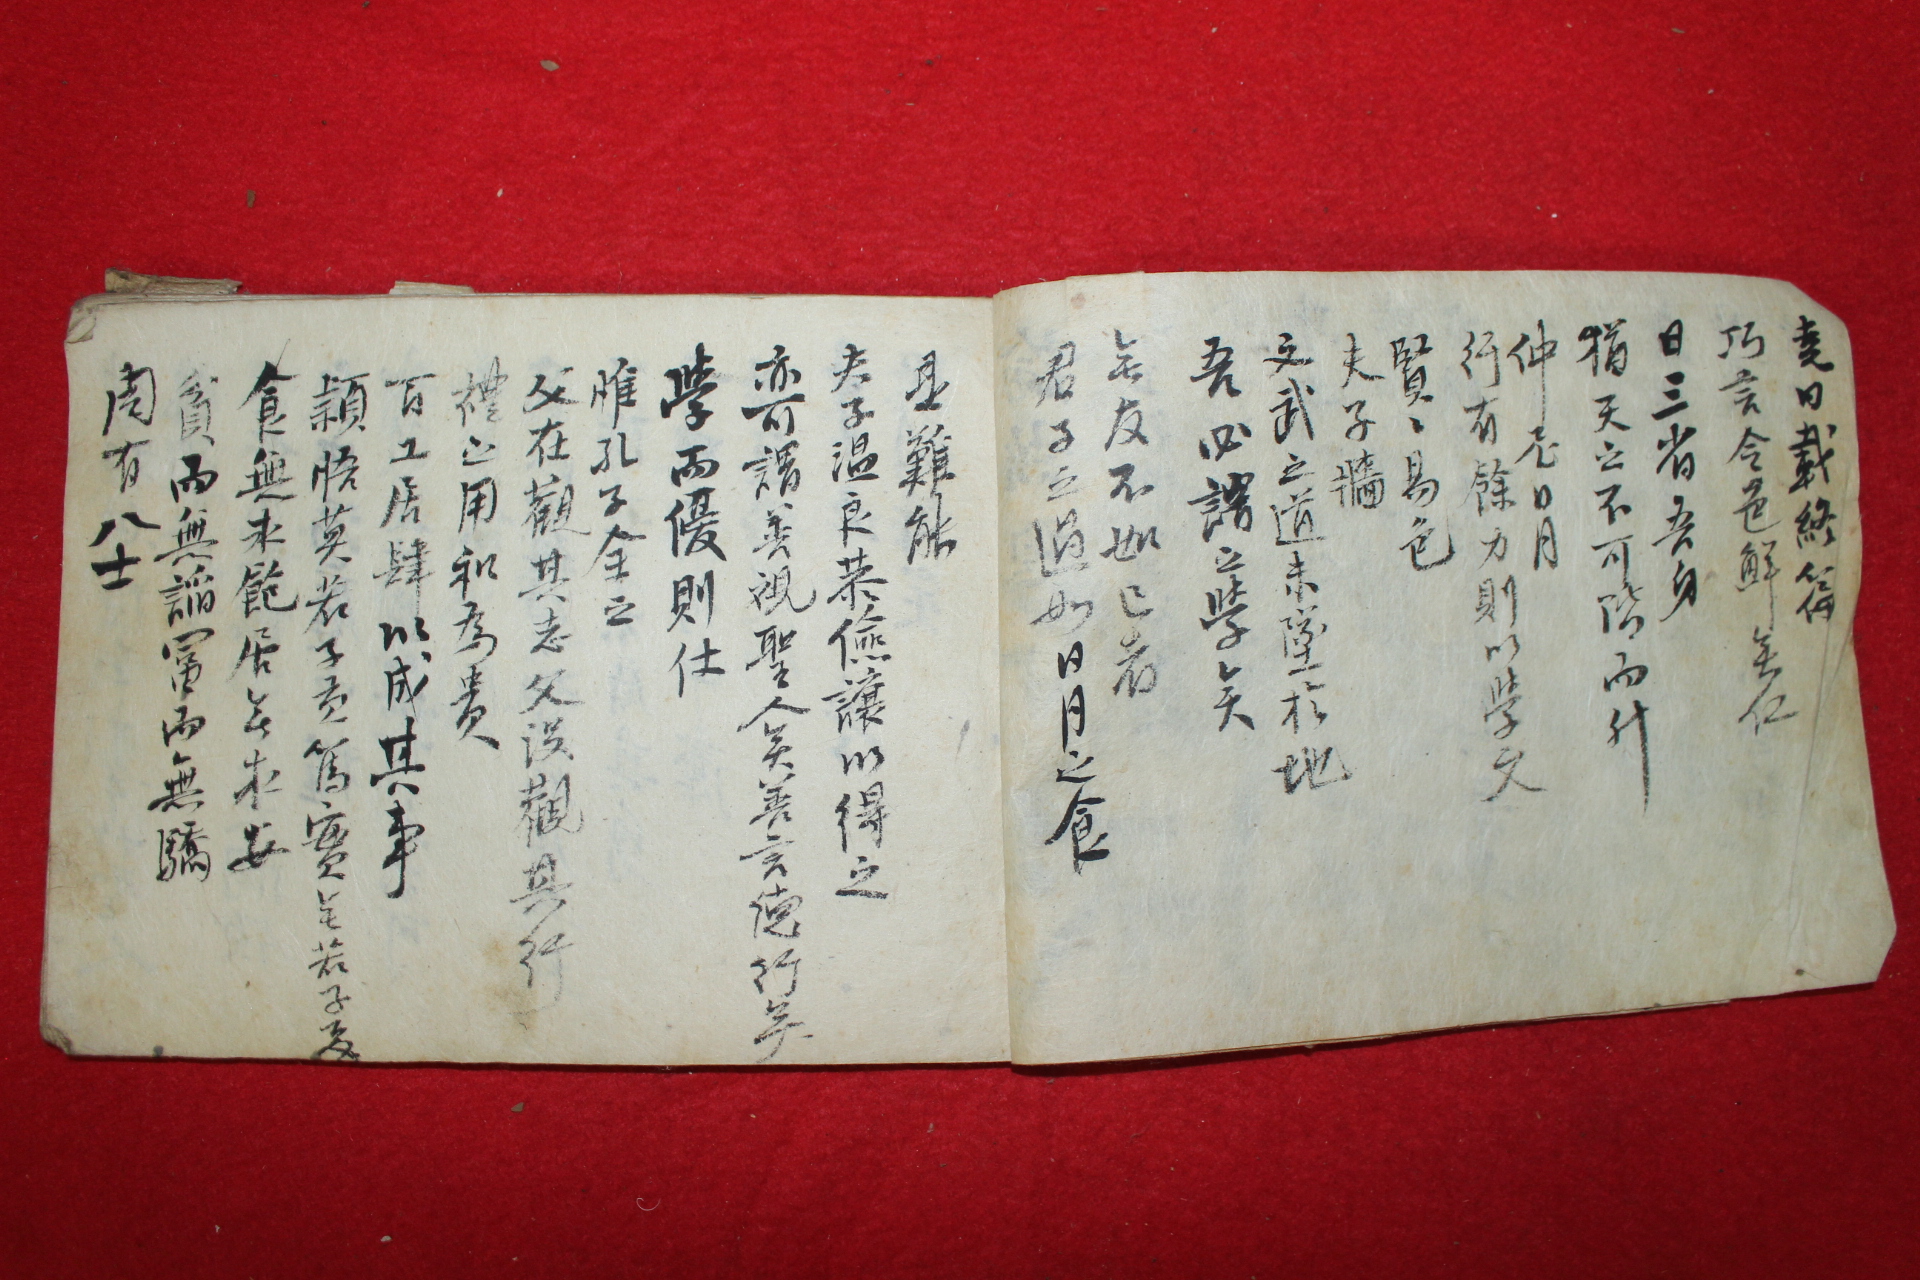 堯曰載終篇
巧言令色鮮矣仁
日三省吾身
猶天之不可階而升
仲尼日月
行有餘力則以學文
賢〻易色
夫子牆
文武之道未墜於地
吾必謂之學矣
無友不如己者
君子之過如日月之食
是難能
夫子溫良恭儉讓以得之
亦可謂善視聖人矣善言德行矣
學而優則仕
惟孔子全之
父在觀其志父沒觀其行
禮之用和為貴
百工居肆以成其事
穎悟莫若子貢篤實無若子夏
食無求飽居無求安
貧而無諂富而無驕
周有八士